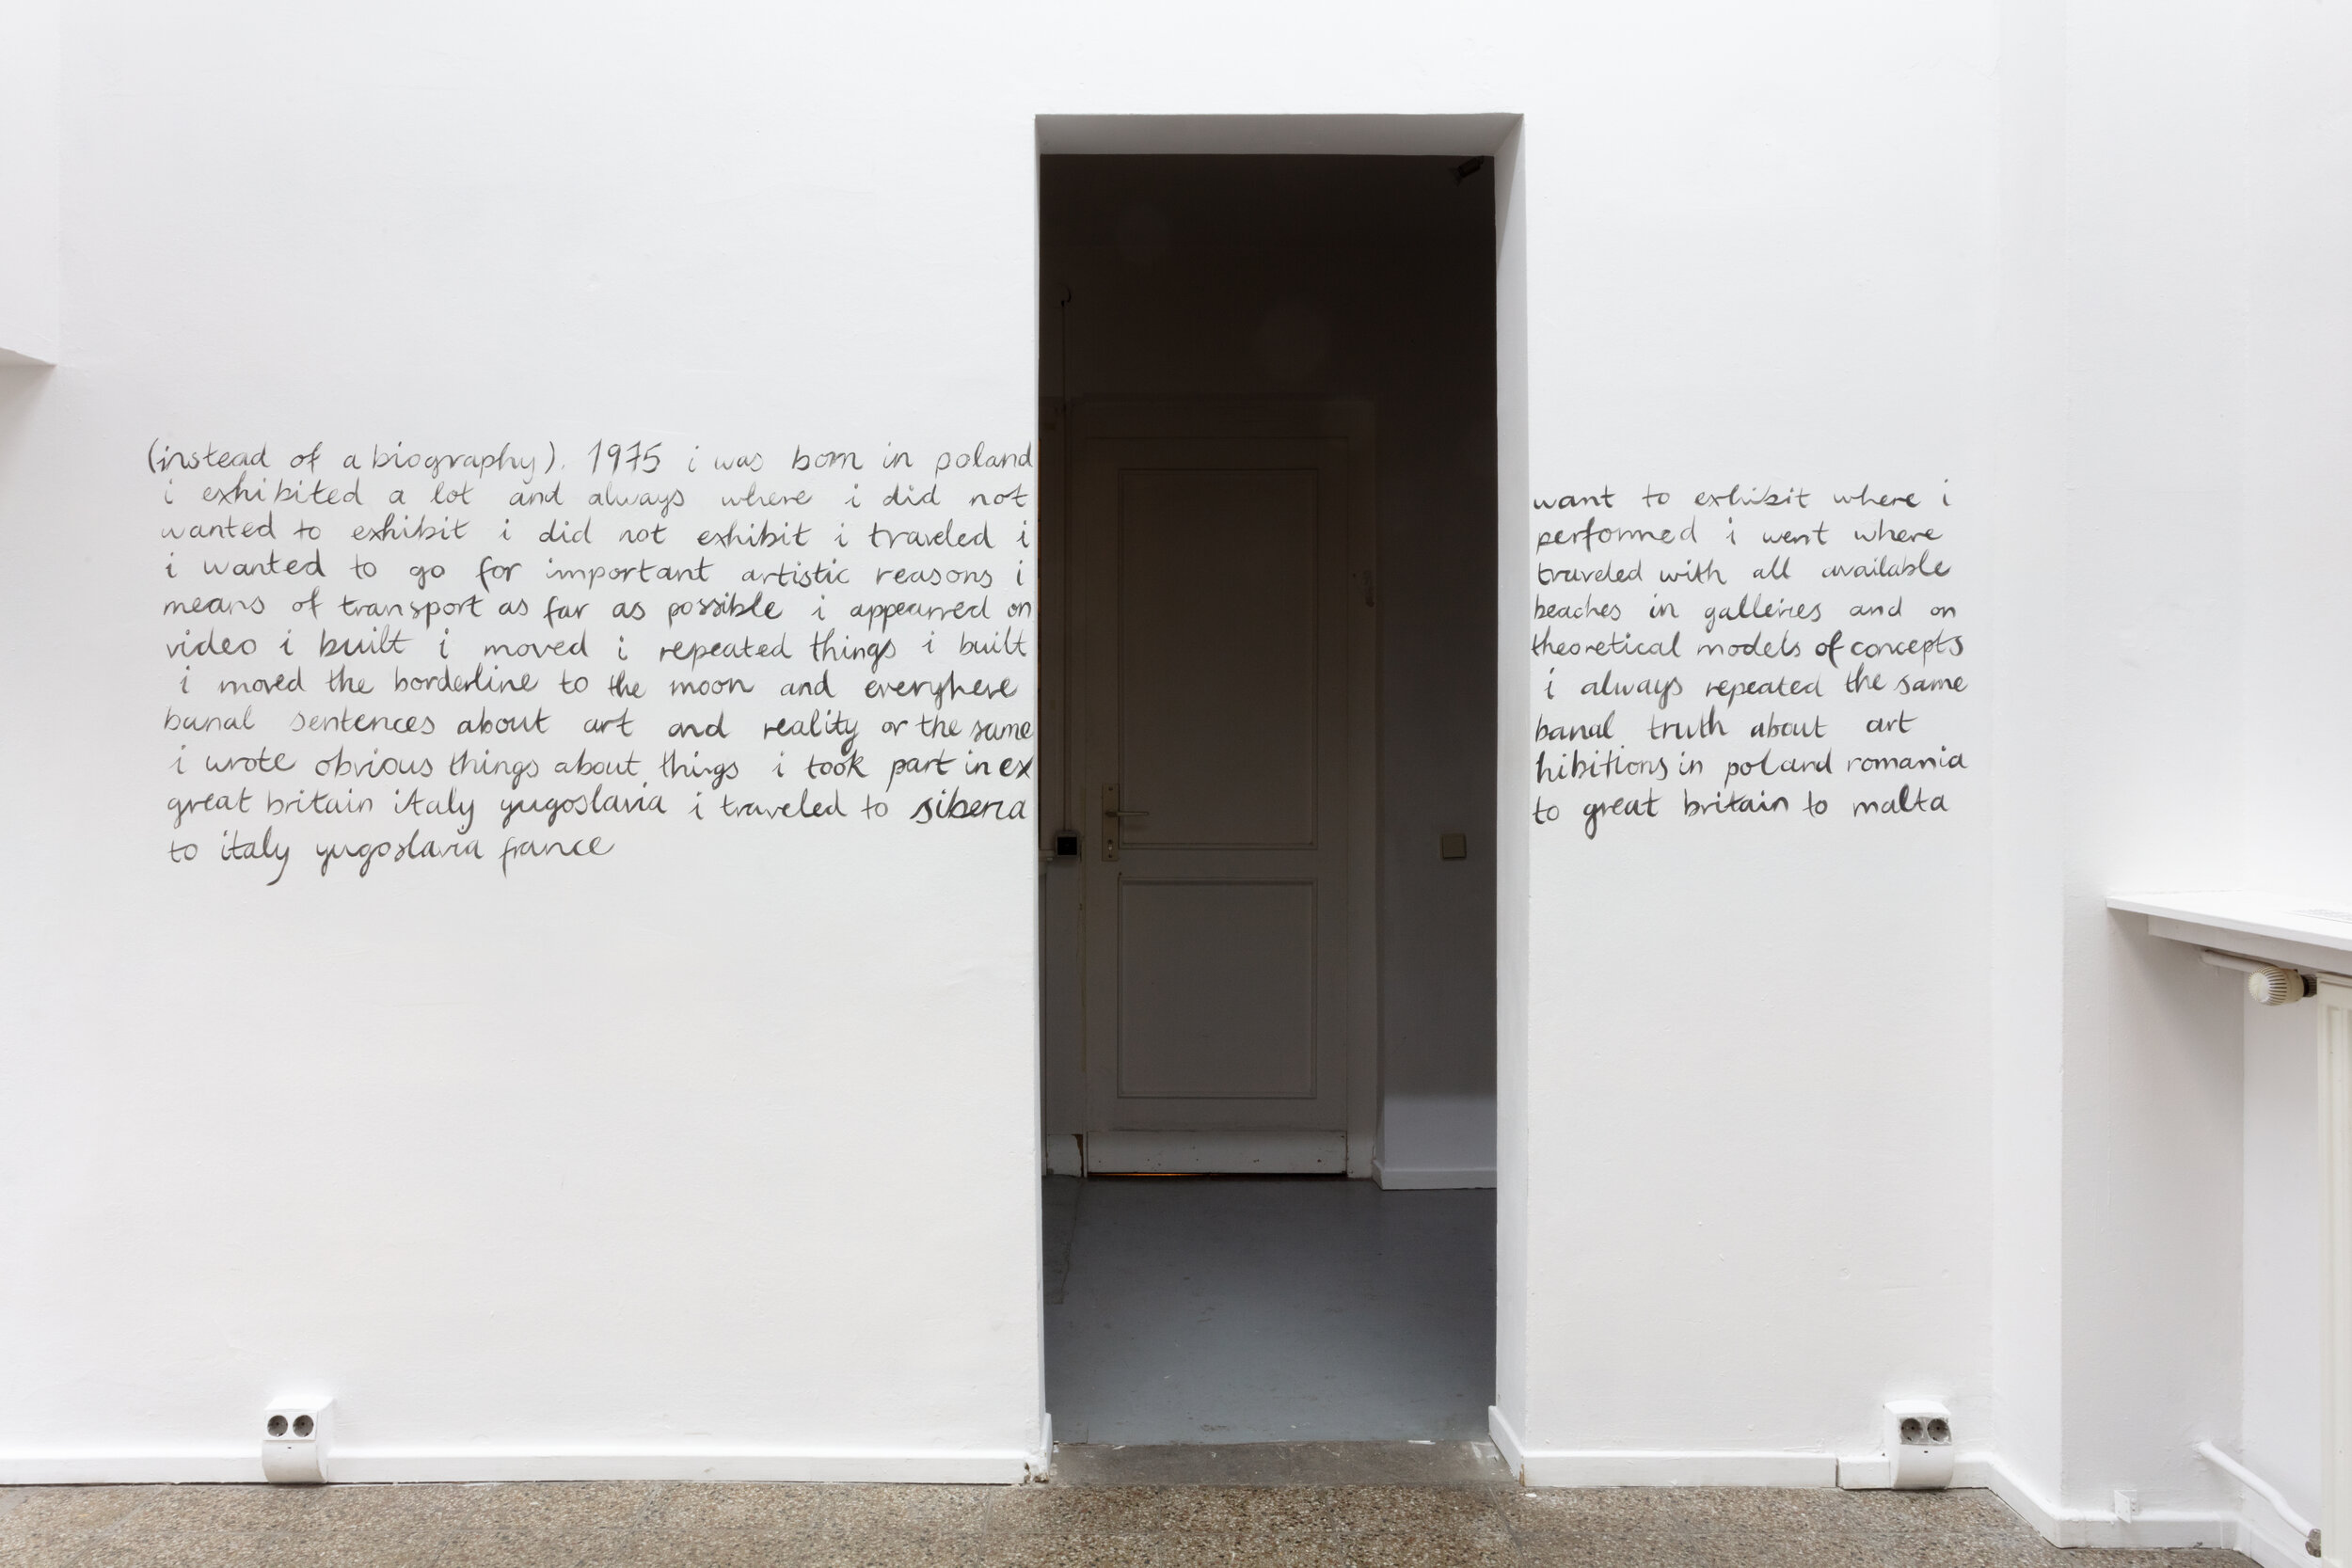 (instead of a biography). 1975 i was born in poland
i exhibited a lot and always where i did not want to exhibit where i
wanted to exhibit i did not exhibit i traveled i performed i went where
i wanted to go for important artistic reasons i traveled with all available
means of transport as far as possible i appeared on beaches in galleries and on
video i built i moved i repeated things i built theoretical models of concepts
i moved the borderline to the moon and everyhere i always repeated the same
banal sentences about art and reality or the same banal truth about art
i wrote obvious things about things i took part in ex hibitions in poland romania
great britain italy yugoslavia i traveled to siberia to great britain to malta
to italy yugoslavia france